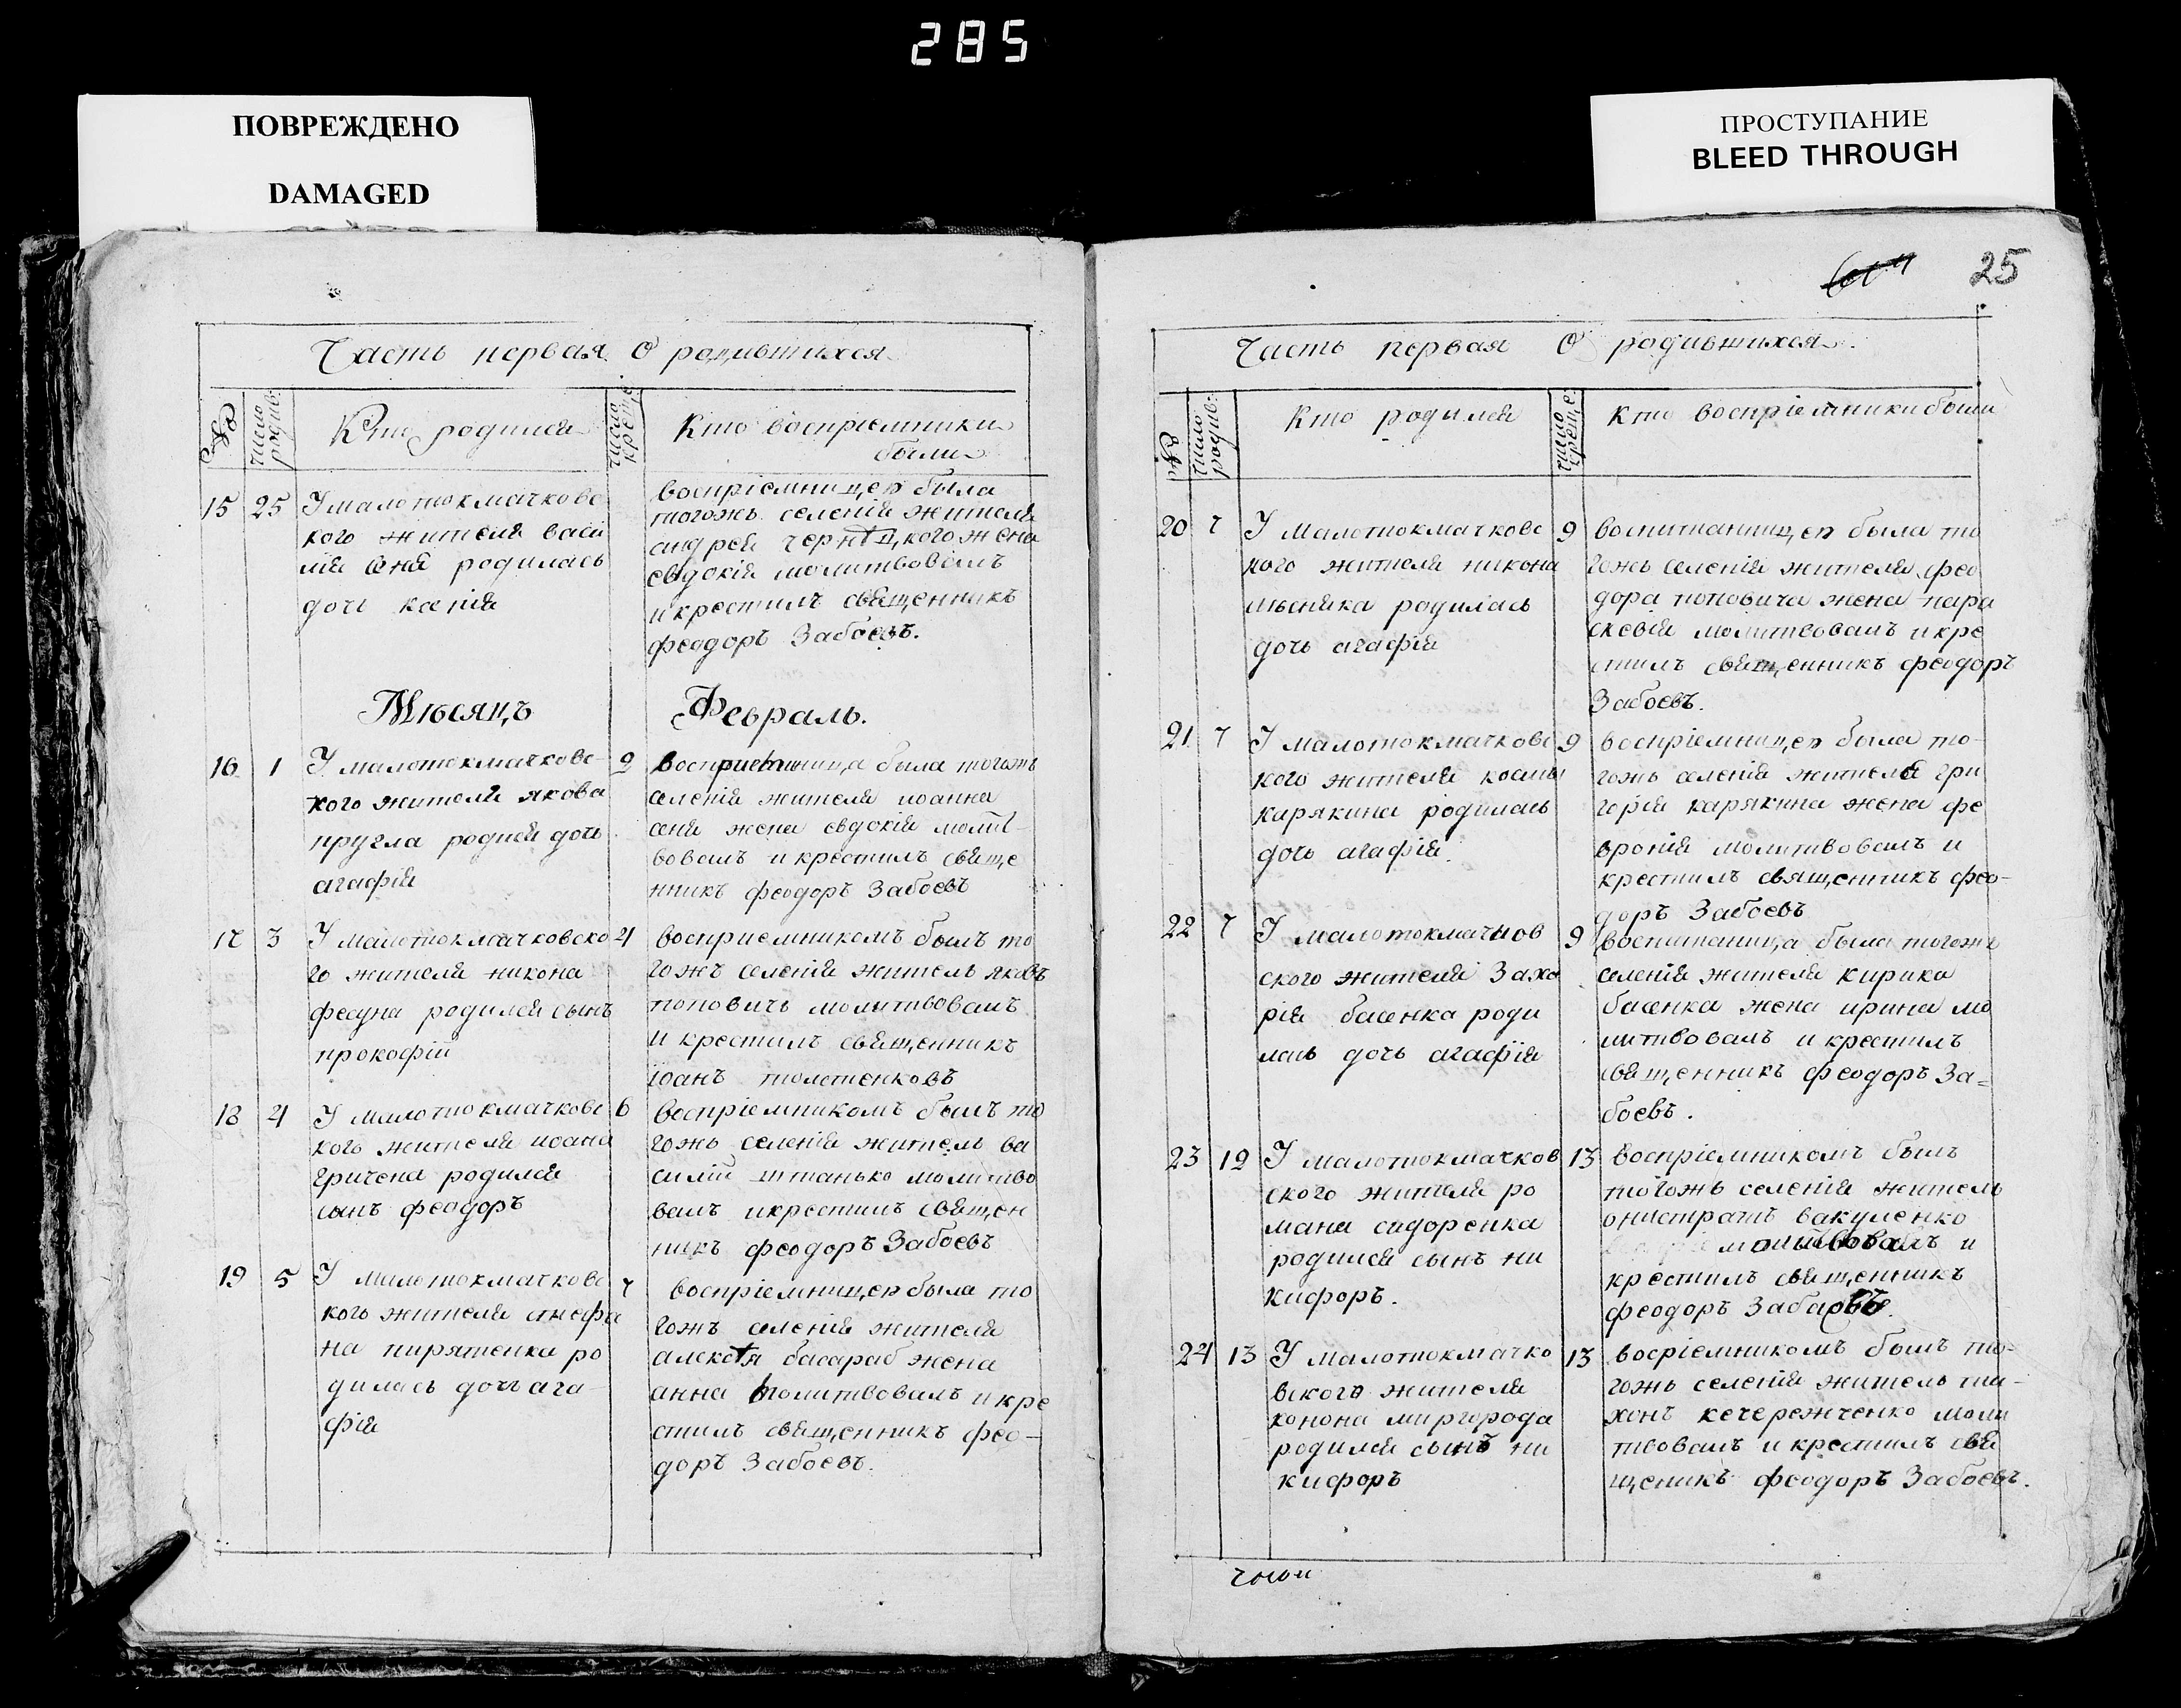 285
ПОВРЕЖДЕНО
DAMAGED
ПРОСТУПАНИЕ
BLEED THROUGH
25
Часть первая О родившихся
№
число родив:
Кто родился
число креще:
Кто восприемники
были
15 25
У малотокмачковс
кого жителя васи
лія сеня родилась
дочь ксенія
воспріемницею была
тогожъ селенія жителя
андрея чернецкого жена
евдокія молитвовалъ
и крестилъ священникъ
феодоръ Забоевъ.
Мѣсяцъ Февраль.
16 1
У малотокмачковс
кого жителя якова
пругла родися дочь
агафія
2
восприемница была тогожъ
селенія жителя иоанна
сеня жена евдокія молит
вовалъ и крестилъ свяще
нникъ феодоръ Забоевъ
17 3
У малотокмачковско
го жителя никона
фесуна родился сынъ
прокофій
4
восприемникомъ былъ то
гожъ селенія житель яковъ
поповичъ молитвовалъ
и крестилъ священникъ
іоанъ толстенковъ
18 4
У малотокмачковс
кого жителя иоана
гричена родился
сынъ феодоръ
6
воспріемникомъ былъ то
гожъ селенія житель ва
силій штанько молитво
валъ и крестилъ священ
никъ феодоръ Забоевъ
19 5
У малотокмачковс
кого жителя стефа
на пирятенка ро
дилась дочъ ага
фія
7
воспріемницею была то
гожъ селенія жителя
алексея басараб жена
анна молитвовалъ и кре
стилъ священникъ фео-
доръ Забоевъ.
Часть первая О родившихся.
№
число родив:
Кто родился
число креще:
Кто воспріемники были
20 7
У Малотокмачковс
кого жителя никона
лысянка родилась
дочь агафія
9
воспитанницею была то
гожъ селенія жителя фео
дора поповича жена пара
скевія молитвовалъ и кре
стилъ священникъ феодоръ
Забоевъ.
21 7
У малотокмачковс
кого жителя космы
карякина родилась
дочь агафія.
9
воспріемницею была то-
гожъ селенія жителя гри
горія карякина жена фе
вронія молитвовалъ и
крестилъ священникъ фео-
доръ Забоевъ
22 7
У малотокмачков
ского жителя Заха
рія басенка роди
лась дочь агафія
9
воспитаница была тогожъ
селенія жителя кирика
басенка жена ирина мо
литвовалъ и крестилъ
священникъ феодоръ За=
боевъ.
23 12
У малотокмачков
ского жителя ро
мана сидоренка
родился сынъ ни
кифоръ.
13
воспріемникомъ былъ
тогожъ селенія житель
онистратъ вакуленко
молитвовалъ и
крестилъ священникъ
феодоръ Забаевъ.
24 13
У малотокмачко
вского жителя
конона миргорода
родился сынъ ни
кифоръ
13
восріемникомъ былъ то-
гожъ селенія житель ти-
хонъ кечережченко моли
твовалъ и крестилъ свя
щеникъ феодоръ Забоевъ.